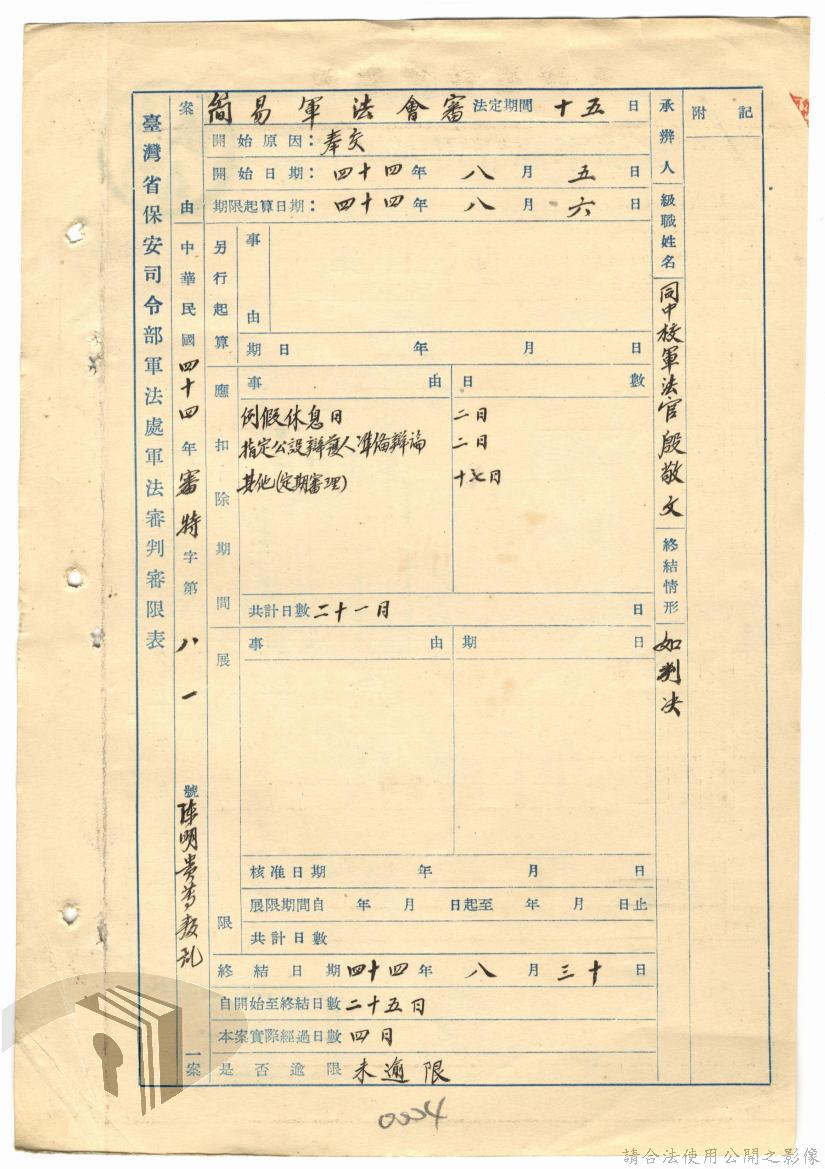 臺灣省保安司令部軍法處軍法審判審限表
案由 中華民國四十四年審特字第八一號陳明貴等叛乱一案
簡易軍法會審 法定期間 十五 日
開始原因：奉交
開始日期：四十四年 八 月 五 日
期限起算日期：四十四年 八 月 六 日
另行起算
事由
期日 年 月 日
應扣除期間
事由 日數
例假休息日 二日
指定公設辯護人準備辯論 二日
其他(定期審理) 十七日
共計日數二十一日 日
展限
事由 期日
核准日期 年 月 日
展限期間自 年 月 日起至 年 月 日止
共計日數
終結日期四十四年 八 月 三十 日
自開始至終結日數二十五日
本案實際經過日數 四日
是否逾限 未逾限
承辦人級職姓名 同中校軍法官殷敬文
終結情形 如判决
附記
0034
請合法使用公開之影像